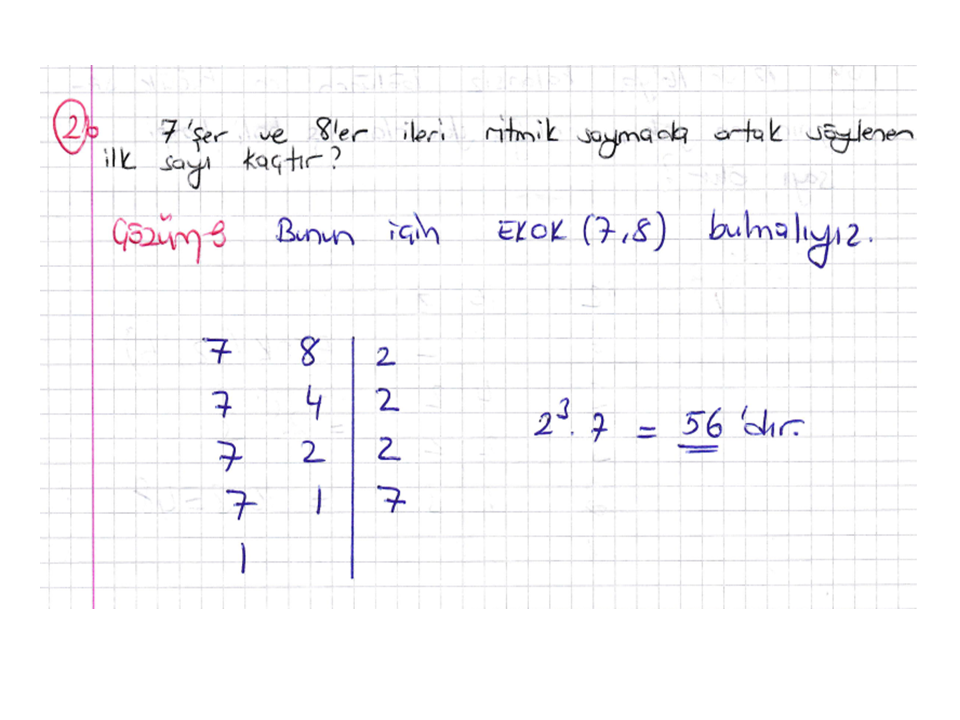 2) 7'şer ve 8'er ileri ritmik saymada ortak söylenen
ilk sayı kaçtır?
Çözüm: Bunun için EKOK (7,8) bulmalıyız.
7 8 | 2
7 4 | 2
7 2 | 2
7 1 | 7
1
2³.7 = 56'dır.